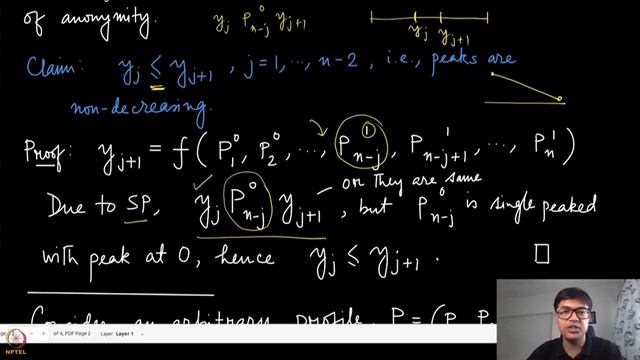 of anonymity.
y_j P^0_{n-j} y_{j+1}
y_j y_{j+1}
Claim: y_j ≤ y_{j+1} , j = 1, ..., n-2 , i.e., peaks are
non-decreasing.
Proof: y_{j+1} = f ( P^0_1, P^0_2, ..., P^1_{n-j}, P^1_{n-j+1}, ..., P^1_n )
or they are same
Due to SP, y_j P^0_{n-j} y_{j+1} , but P^0_{n-j} is single peaked
with peak at 0, hence y_j ≤ y_{j+1} . □
Consider an arbitrary profile, P = (P P
of 4, PDF Page 2 Layer Layer 1
NPTEL